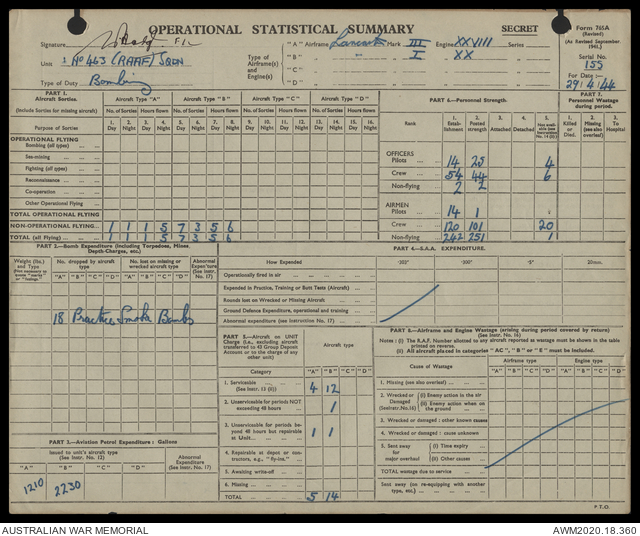 OPERATIONAL STATISTICAL SUMMARY
SECRET
Form 765A
(Revised)
(As Revised September, 1941.)
Signature F/L
Unit No 463 (RAAF) SQDN
Type of Duty Bombing
Type of Airframe(s) and Engine(s)
"A" Airframe Lancaster Mark III Engine XXVIII Series
"B" I XX
"C"
"D"
Serial No. 155
For Date :—
29/4/44
PART 1.
Aircraft Sorties.
(Include Sorties for missing aircraft)
Aircraft Type "A" Aircraft Type "B" Aircraft Type "C" Aircraft Type "D"
No. of Sorties Hours flown No. of Sorties Hours flown No. of Sorties Hours flown No. of Sorties Hours flown
Purpose of Sorties
1. Day 2. Night 3. Day 4. Night 5. Day 6. Night 7. Day 8. Night 9. Day 10. Night 11. Day 12. Night 13. Day 14. Night 15. Day 16. Night
OPERATIONAL FLYING
Bombing (all types)
Sea-mining
Fighting (all types)
Reconnaissance
Co-operation
Other Operational Flying
TOTAL OPERATIONAL FLYING
NON-OPERATIONAL FLYING 1 1 1 5 7 3 5 6
TOTAL (all Flying) 1 1 1 5 7 3 5 6
PART 6.—Personnel Strength.
Rank
1. Establishment 2. Posted strength 3. Attached 4. Detached 5. Not available
OFFICERS
Pilots 14 25 4
Crew 54 44 6
Non-flying 2 2
AIRMEN
Pilots 14 1
Crew 120 101 20
Non-flying 242 251 1
PART 7.
Personnel Wastage during period.
1. Killed or Died. 2. Missing (see also overleaf) 3. To Hospital
PART 2.—Bomb Expenditure (including Torpedoes, Mines, Depth-Charges, etc.)
Weight (lbs.) and Type
No. dropped by aircraft type
No. lost on missing or wrecked aircraft type
Abnormal Expen'ture (See Instr. No. 17)
"A" "B" "C" "D" "A" "B" "C" "D"
18 Practice Smoke Bombs
PART 4.—S.A.A. EXPENDITURE.
How Expended ·303" ·300" ·5" 20mm.
Operationally fired in air
Expended in Practice, Training or Butt Tests (Aircraft)
Rounds lost on Wrecked or Missing Aircraft
Ground Defence Expenditure, operational and training
Abnormal expenditure (see Instruction No. 17)
PART 5.—Aircraft on UNIT Charge (i.e., excluding aircraft transferred to 43 Group Deposit Account or to the charge of any other unit)
Aircraft type
Category "A" "B" "C" "D"
1. Serviceable (See Instr. 13 (ii)) 4 12
2. Unserviceable for periods NOT exceeding 48 hours 1
3. Unserviceable for periods beyond 48 hours but repairable at Unit 1 1
4. Repairable at depot or contractors, e.g., "fly-ins."
5. Awaiting write-off
6. Missing
TOTAL 5 14
PART 8.—Airframe and Engine Wastage (arising during period covered by return)
(See Instr. No. 16)
Notes : (i) The R.A.F. Number allotted to any aircraft reported as wastage must be shown in the table printed on reverse.
(ii) All aircraft placed in categories "AC", "B" or "E" must be included.
Cause of Wastage
Airframe type Engine type
"A" "B" "C" "D" "A" "B" "C" "D"
1. Missing (see also overleaf)
2. Wrecked or Damaged (See Instr. No. 16) (i) Enemy action in the air
(ii) Enemy action when on the ground
3. Wrecked or damaged : other known causes
4. Wrecked or damaged : cause unknown
5. Sent away for major overhaul (i) Time expiry
(ii) Other causes
TOTAL wastage due to service
Sent away (on re-equipping with another type, etc.)
PART 3.—Aviation Petrol Expenditure : Gallons
Issued to unit's aircraft type (See Instr. No. 12)
Abnormal Expenditure (See Instr. No. 17)
"A" "B" "C" "D"
1210 2230
P.T.O.
AUSTRALIAN WAR MEMORIAL
AWM2020.18.360